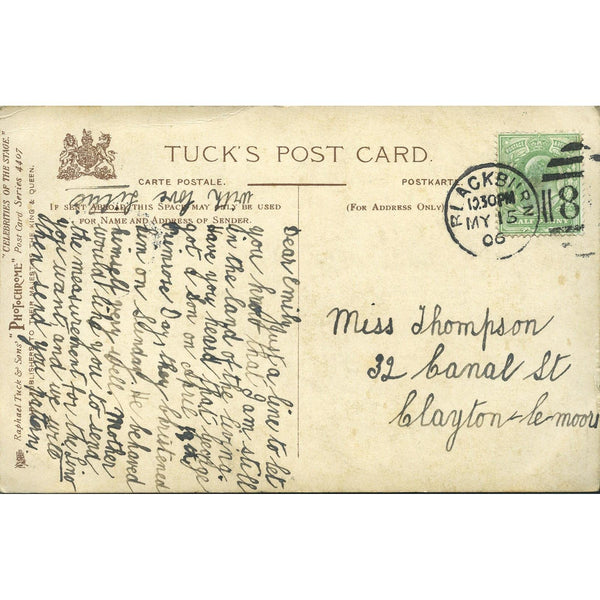 TUCK'S POST CARD.
CARTE POSTALE.
POSTKARTE
IF SENT ABROAD THIS SPACE MAY ONLY BE USED
FOR NAME AND ADDRESS OF SENDER.
(FOR ADDRESS ONLY)
BLACKBURN
10.30PM
MY 15
06
118
HALFPENNY
Miss Thompson
32 Canal St
Clayton-le-moors
Dear Emily Just a line to let
you know that I am still
in the land of the living.
Have you heard that George
got a son on April 19th
Primrose Day they christened
him on Sunday. He behaved
himself very well. Mother
would like you to send
the measurement for the lino
you want and we will
then send you pattern.
with love Lillie
"CELEBRITIES OF THE STAGE."
Raphael Tuck & Sons' "PHOTOCHROME" Post Card Series 4407
PUBLISHERS TO THEIR MAJESTIES THE KING & QUEEN.